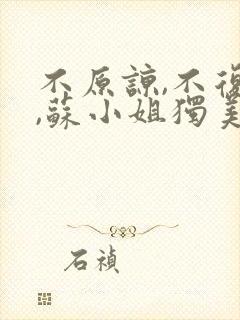 不原諒,不復
,蘇小姐獨美
石禎